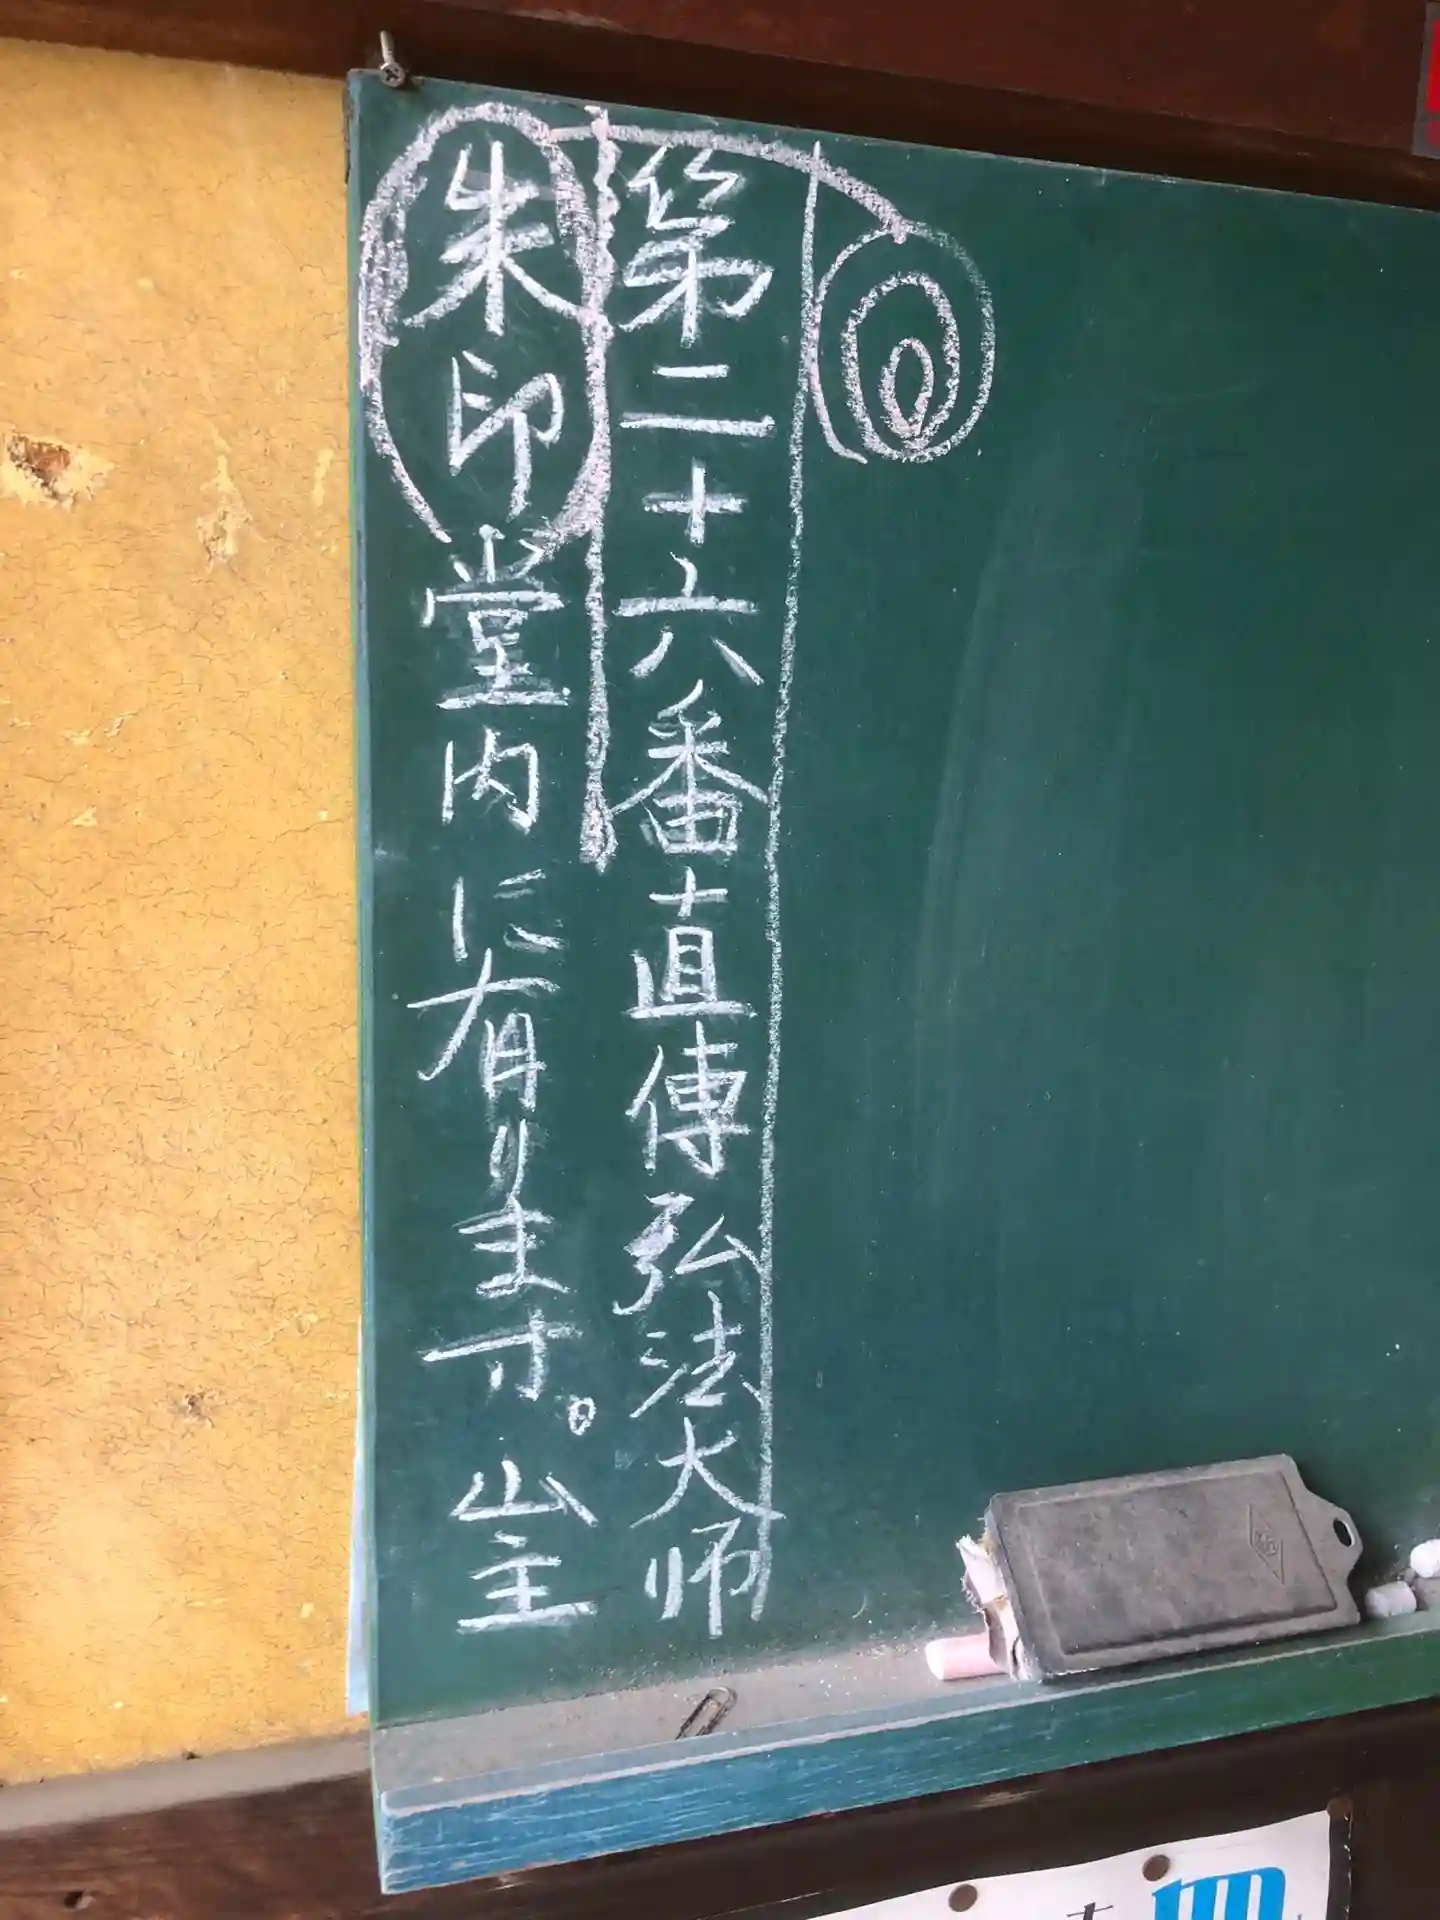 第二十六番直傳弘法大师
朱印堂内に有ります。山主